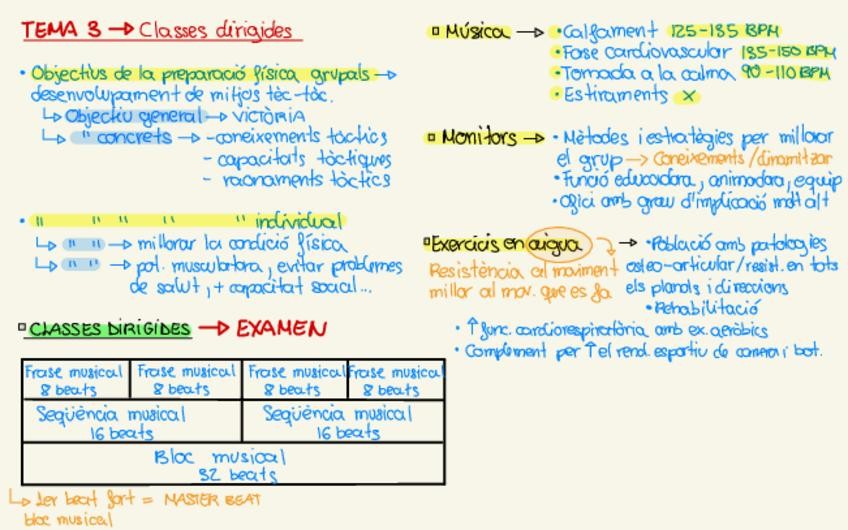 TEMA 3 → Classes dirigides
• Objectius de la preparació física grupals →
desenvolupament de mitjos tèc-tàc.
↳ Objectiu general → VICTÒRIA
↳ " concrets → - coneixements tàctics
- capacitats tàctiques
- raonaments tàctics
• " " " " " individual
↳ " " → millorar la condició física
↳ " " → pot. musculatura, evitar problemes
de salut, + capacitat social...
CLASSES DIRIGIDES → EXAMEN
Frase musical Frase musical Frase musical Frase musical
8 beats 8 beats 8 beats 8 beats
Seqüència musical Seqüència musical
16 beats 16 beats
Bloc musical
32 beats
↳ 1er beat fort = MASTER BEAT
bloc musical
Música → • Calfament 125-135 BPM
• Fase cardiovascular 135-150 BPM
• Tornada a la calma 90-110 BPM
• Estiraments X
Monitors → • Mètodes i estratègies per millorar
el grup → Coneixements/dinamitzar
• Funció educadora, animadora, equip
• Ofici amb grau d'implicació molt alt
Exercicis en aigua → • Població amb patologies
Resistència al moviment osteo-articular/resist. en tots
millor al mov. que es fa els planols i direccions
• Rehabilitació
• ↑ func. cardiorespiratòria amb ex. aeròbics
• Complement per ↑ el rend. esportiu de carrera i bot.